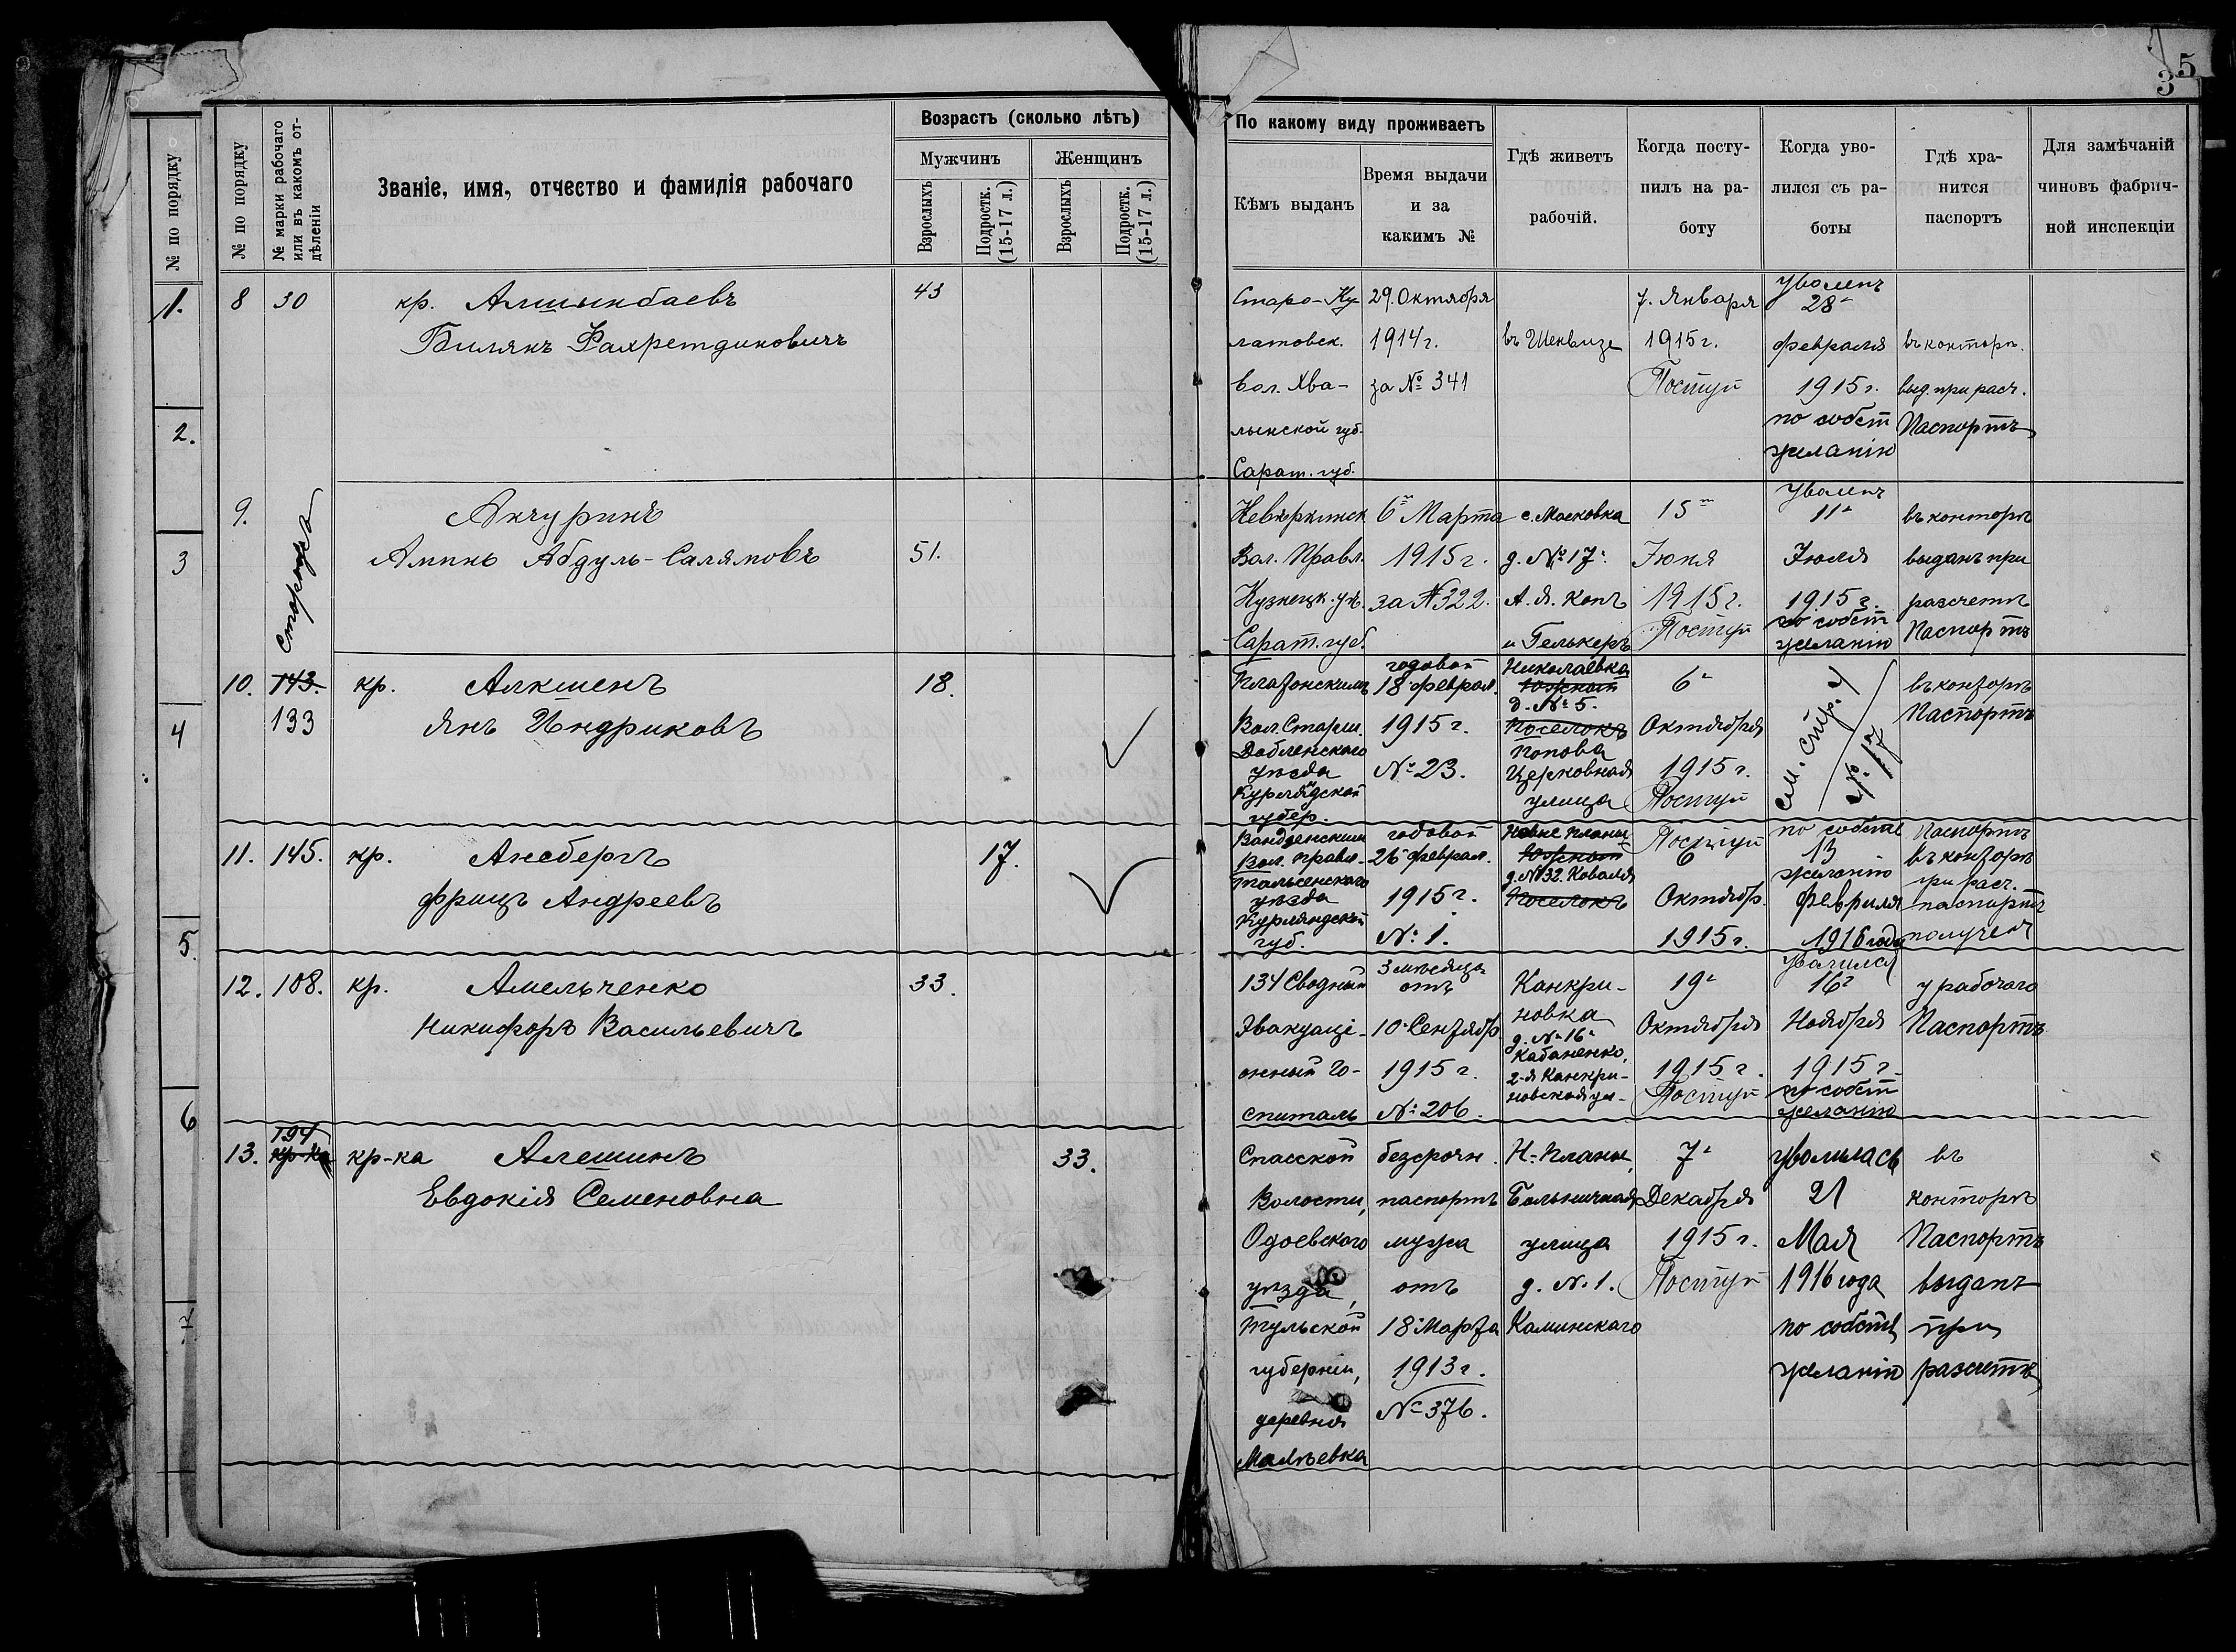 35
№ по порядку
1.
2.
3
4
5.
6
7
№ по порядку
№ марки рабочаго или въ какомъ от-дѣленіи
Званіе, имя, отчество и фамилія рабочаго
Возрастъ (сколько лѣтъ)
Мужчинъ
Женщинъ
Взрослыхъ
Подростк. (15-17 л.)
Взрослыхъ
Подростк. (15-17 л.)
По какому виду проживаетъ
Кѣмъ выданъ
Время выдачи
и за
какимъ №
Гдѣ живетъ
рабочій.
Когда посту-
пилъ на ра-
боту
Когда уво-
лился съ ра-
боты
Гдѣ хра-
нится
паспортъ
Для замѣчаній
чиновъ фабрич-
ной инспекціи
8 30 кр. Алшынбаевъ 43
Билякъ Фахретдиновичъ
Старо-Ку-
латовск.
вол. Хва-
лынской губ.
Сарат. губ.
29. Октября
1914 г.
за № 341
въ
7. Января
1915 г.
Поступ
Уволенъ
28
февраля
1915 г.
по собст
желанію
въ контор.
выд. при расч.
Паспортъ
9. сторожъ Акчуринъ
Аминь Абдуль-Салямовъ 51.
Невѣркинск
Вол. Правл.
Кузнецк. уѣ.
Сарат. губ.
6 Марта
1915 г.
за № 322.
с. Масковка
д. № 17.
А. Я. Копъ
и Гелькеръ
15
Іюня
1915 г.
Поступ
Уволенъ
11
Іюля
1915 г.
по собст
желанію
въ конторѣ
выданъ при
разсчетѣ
Паспортъ
10. 143. кр. Алкшенъ 18.
133 Янъ Индриковъ
Вол. Старш.
Добленскаго
уѣзда
Курляндской
губер.
годовой
18 феврал.
1915 г.
№ 23.
Николаевка
Южный
д. № 5.
Поселокъ
Попова
Церковная
улица
6
Октября
1915 г.
Поступ
см. стр. 4
№ 17
въ конторѣ
Паспортъ
11. 145. кр. Ансбергъ 17.
Фрицъ Андреевъ
Вол. правл.
Тальсенскаго
уѣзда
Курляндской
губ.
годовой
26 феврал.
1915 г.
№ 1.
Новые планы
Южный
д. № 32. Коваля
Поселокъ
Поступ
6
Октябр.
1915 г.
по собств
13
желанію
Февраля
1916 года
Паспортъ
въ конторѣ
при расч.
паспортъ
полученъ
12. 108. кр. Амельченко 33.
Никифоръ Васильевичъ
134 Сводный
Эвакуаці-
онный Го-
спиталь
3 мѣсяца
отъ
10 Сентябр
1915 г.
№ 206.
Канкри-
новка
д. № 16
Кабаненко,
2-я Канкри-
новская ул-
19
Октября
1915 г.
Поступ
Уволился
16
Ноября
1915 г.
по собст
желанію
у рабочаго
Паспортъ
194
13. кр-ка кр-ка Алешинъ 33.
Евдокія Семеновна
Спасской
Волости,
Одоевскаго
уѣзда,
Тульской
губерніи,
деревня
безсрочн.
паспортъ
мужа
отъ
18 Марта
1913 г.
№ 376.
Н-Планы,
Больничная
улица
д. № 1.
Каминскаго
7
Декабря
1915 г.
Поступ
уволилась
21
Мая
1916 года
по собств
желанію
въ
конторѣ
Паспортъ
выданъ
при
разсчетѣ